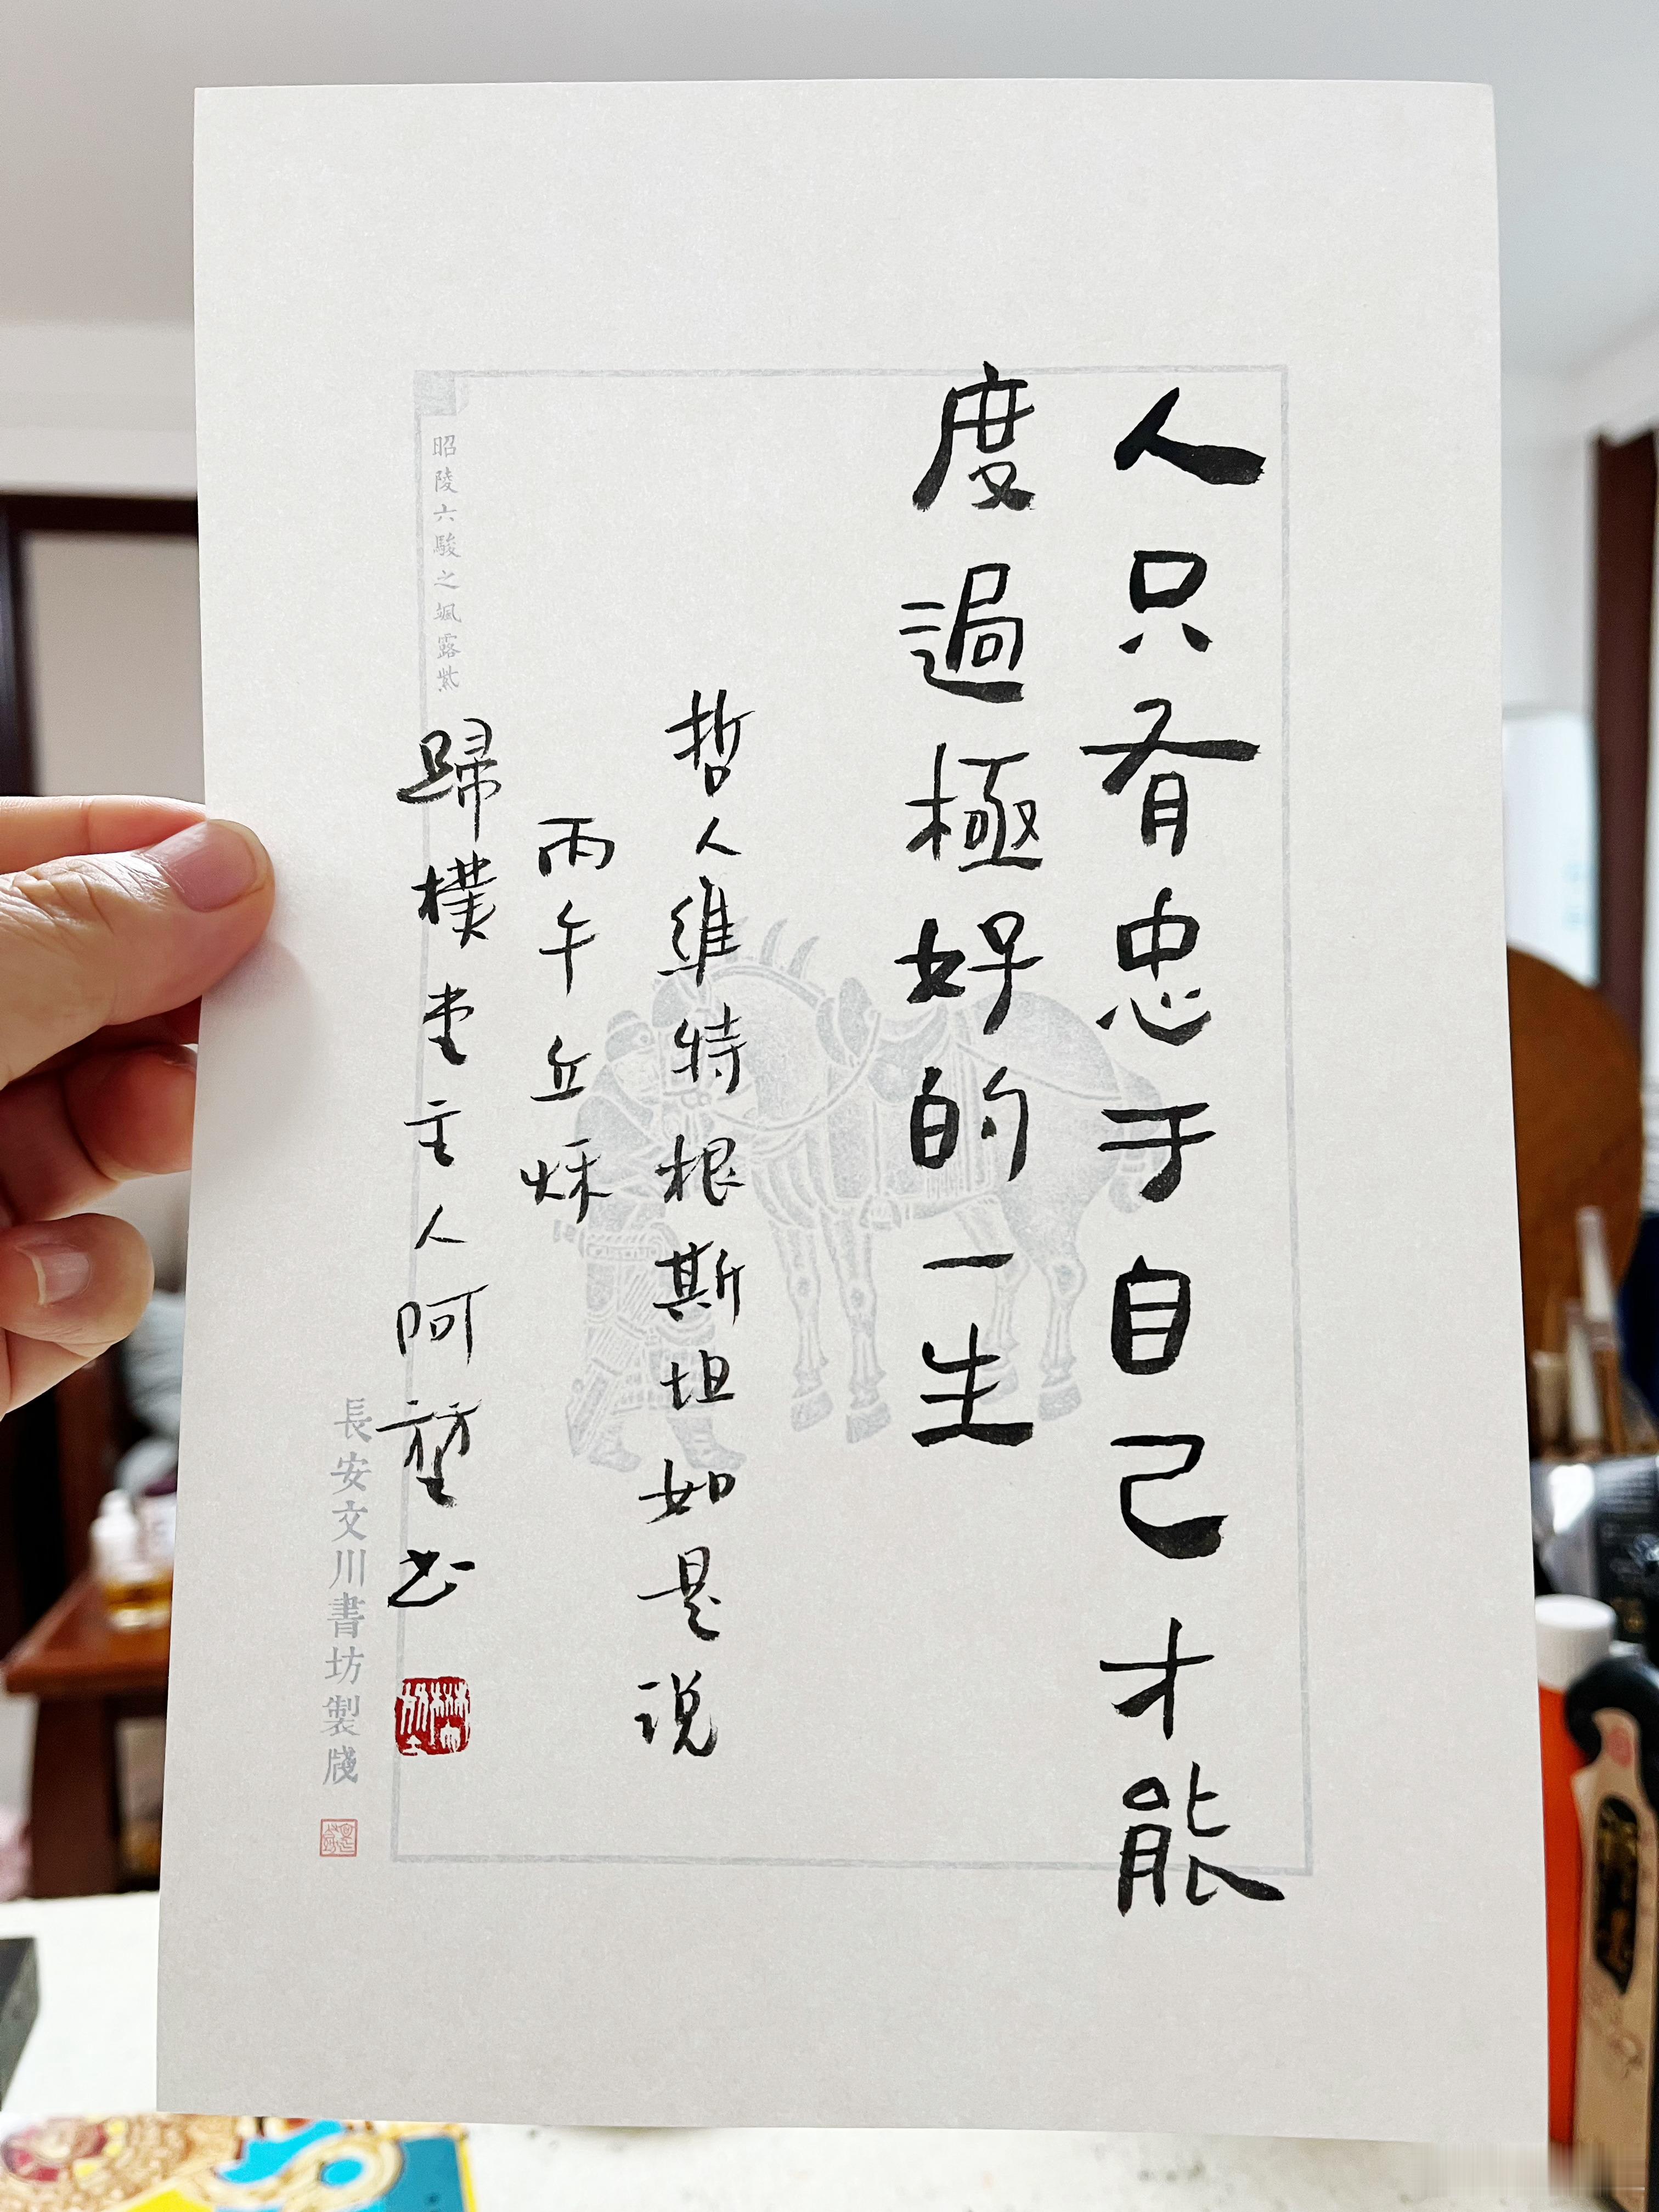 人只有忠于自己才能
度過極好的一生
哲人維特根斯坦如是说
丙午立秌
歸樸堂主人阿堃书
昭陵六駿之颯露紫
長安文川書坊製牋